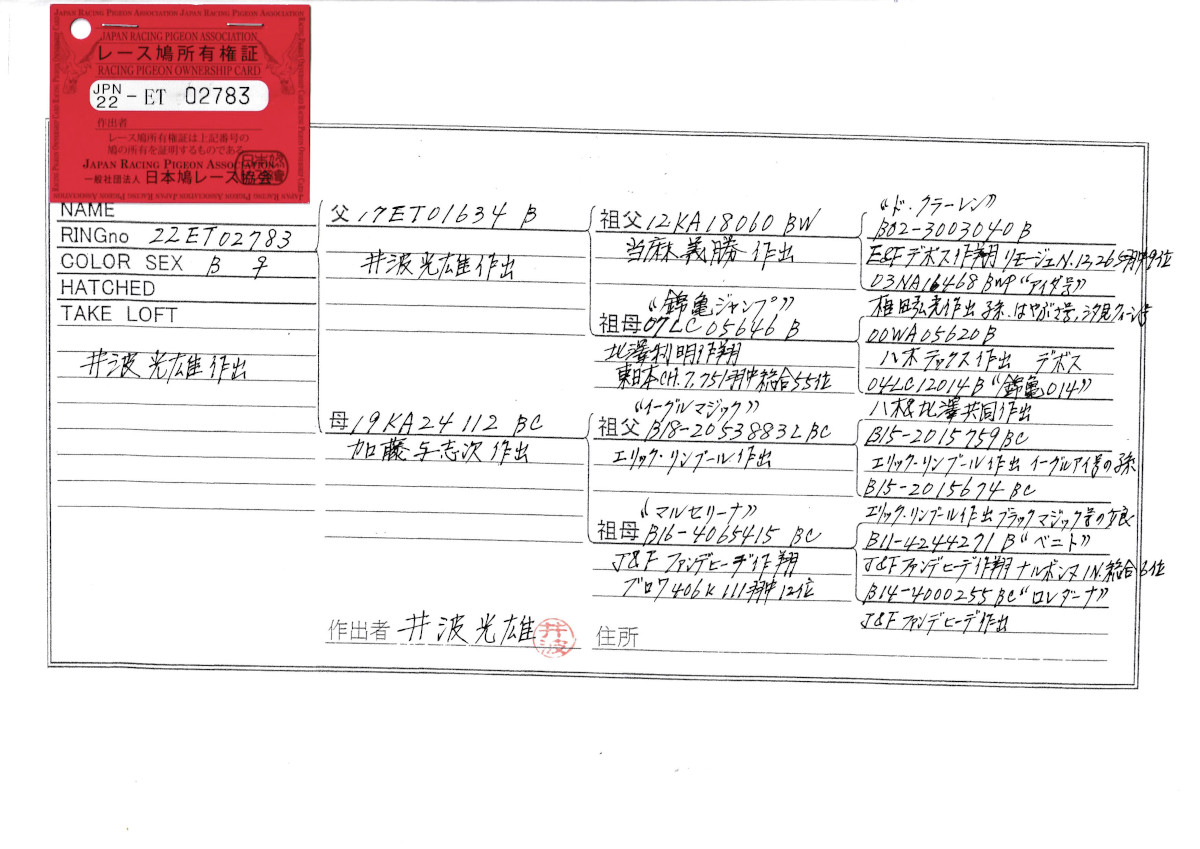 JAPAN RACING PIGEON ASSOCIATION
レース鳩所有権証
RACING PIGEON OWNERSHIP CARD
JPN 22 - ET 02783
作出者
レース鳩所有権証は上記番号の
鳩の所有を証明するものである
JAPAN RACING PIGEON ASSOCIATION
一般社団法人 日本鳩レース協会
NAME
RINGno 22ET02783
COLOR SEX B ♀
HATCHED
TAKE LOFT
井波光雄作出
父 17ET01634 B
井波光雄作出
母 19KA24112 BC
加藤与志次作出
祖父 12KA18060 BW
当麻義勝作出
“錦亀ジャンプ”
祖母 07LC05646 B
北澤利明作翔
東日本CH.7,751羽中総合55位
“イーグルマジック”
祖父 B18-2053883L BC
エリック・リンブール作出
“マルセリーナ”
祖母 B16-4065415 BC
J&F ファンデヒーデ作翔
ブロワ406K 111羽中12位
“ド・クラーレン”
B02-3003040 B
E&F デボス作翔 リモージュN.
03NA16468 BWP “アイダ号”
作出 孫.はやぶさ号,汐見クィーン号
00WA05620 B
八木テックス作出 デボス
04LC12014 B “錦亀014”
八木&北澤共同作出
B15-2015759 BC
エリック・リンブール作出 イーグルアイ号の孫
B15-2015674 BC
エリック・リンブール作出 ブラックマジック号の
B11-4244271 B “ベニト”
J&F ファンデヒーデ作翔 ナルボンヌ IN.総合6位
B14-4000255 BC “ロレダーナ”
J&F ファンデヒーデ作出
作出者 井波光雄 井波
住所